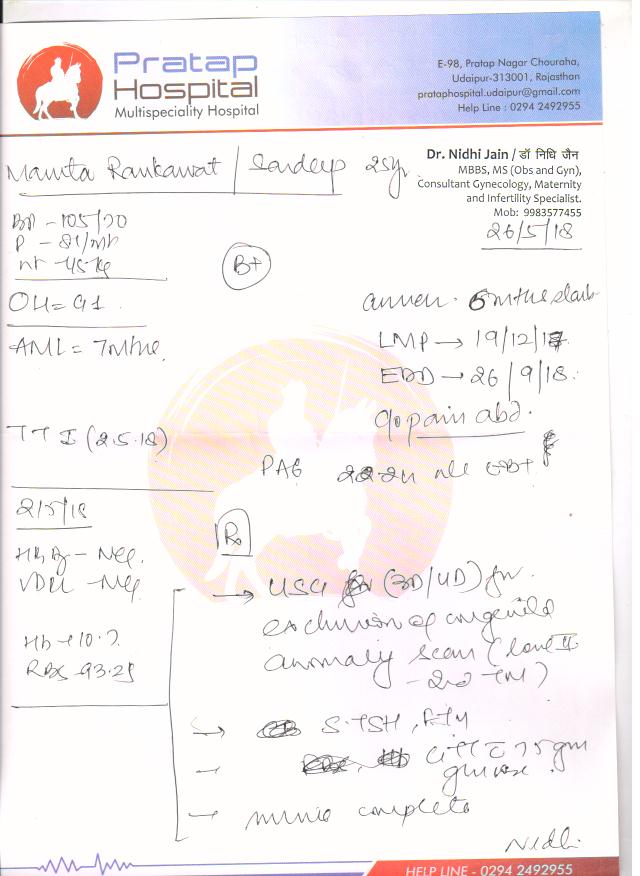 Pratap
Hospital
Multispeciality Hospital
E-98, Pratap Nagar Chouraha,
Udaipur-313001, Rajasthan
prataphospital.udaipur@gmail.com
Help Line : 0294 2492955
Dr. Nidhi Jain / डॉ निधि जैन
MBBS, MS (Obs and Gyn),
Consultant Gynecology, Maternity
and Infertility Specialist.
Mob: 9983577455
Mamta Rankawat / Sandeep 25yr
26/5/18
BP - 105/70
P - 81/mt
wt - 45 kg
B+
OH = G1
AML = 7 mths
LMP → 19/12/17
EDD → 26/9/18
c/o pain abd.
TT I (2.5.18)
P/A
2/5/18
Rx
HBsAg - Neg.
VDRL - Neg
Hb → 10.2
RBS - 93.25
→ USG (3D/4D) for
exclusion of congenital
anomaly scan (level II
- 2nd TM)
→ S.TSH,
→ GTT c 75 gm
glucose.
→ urine complete
Nidhi
HELP LINE - 0294 2492955